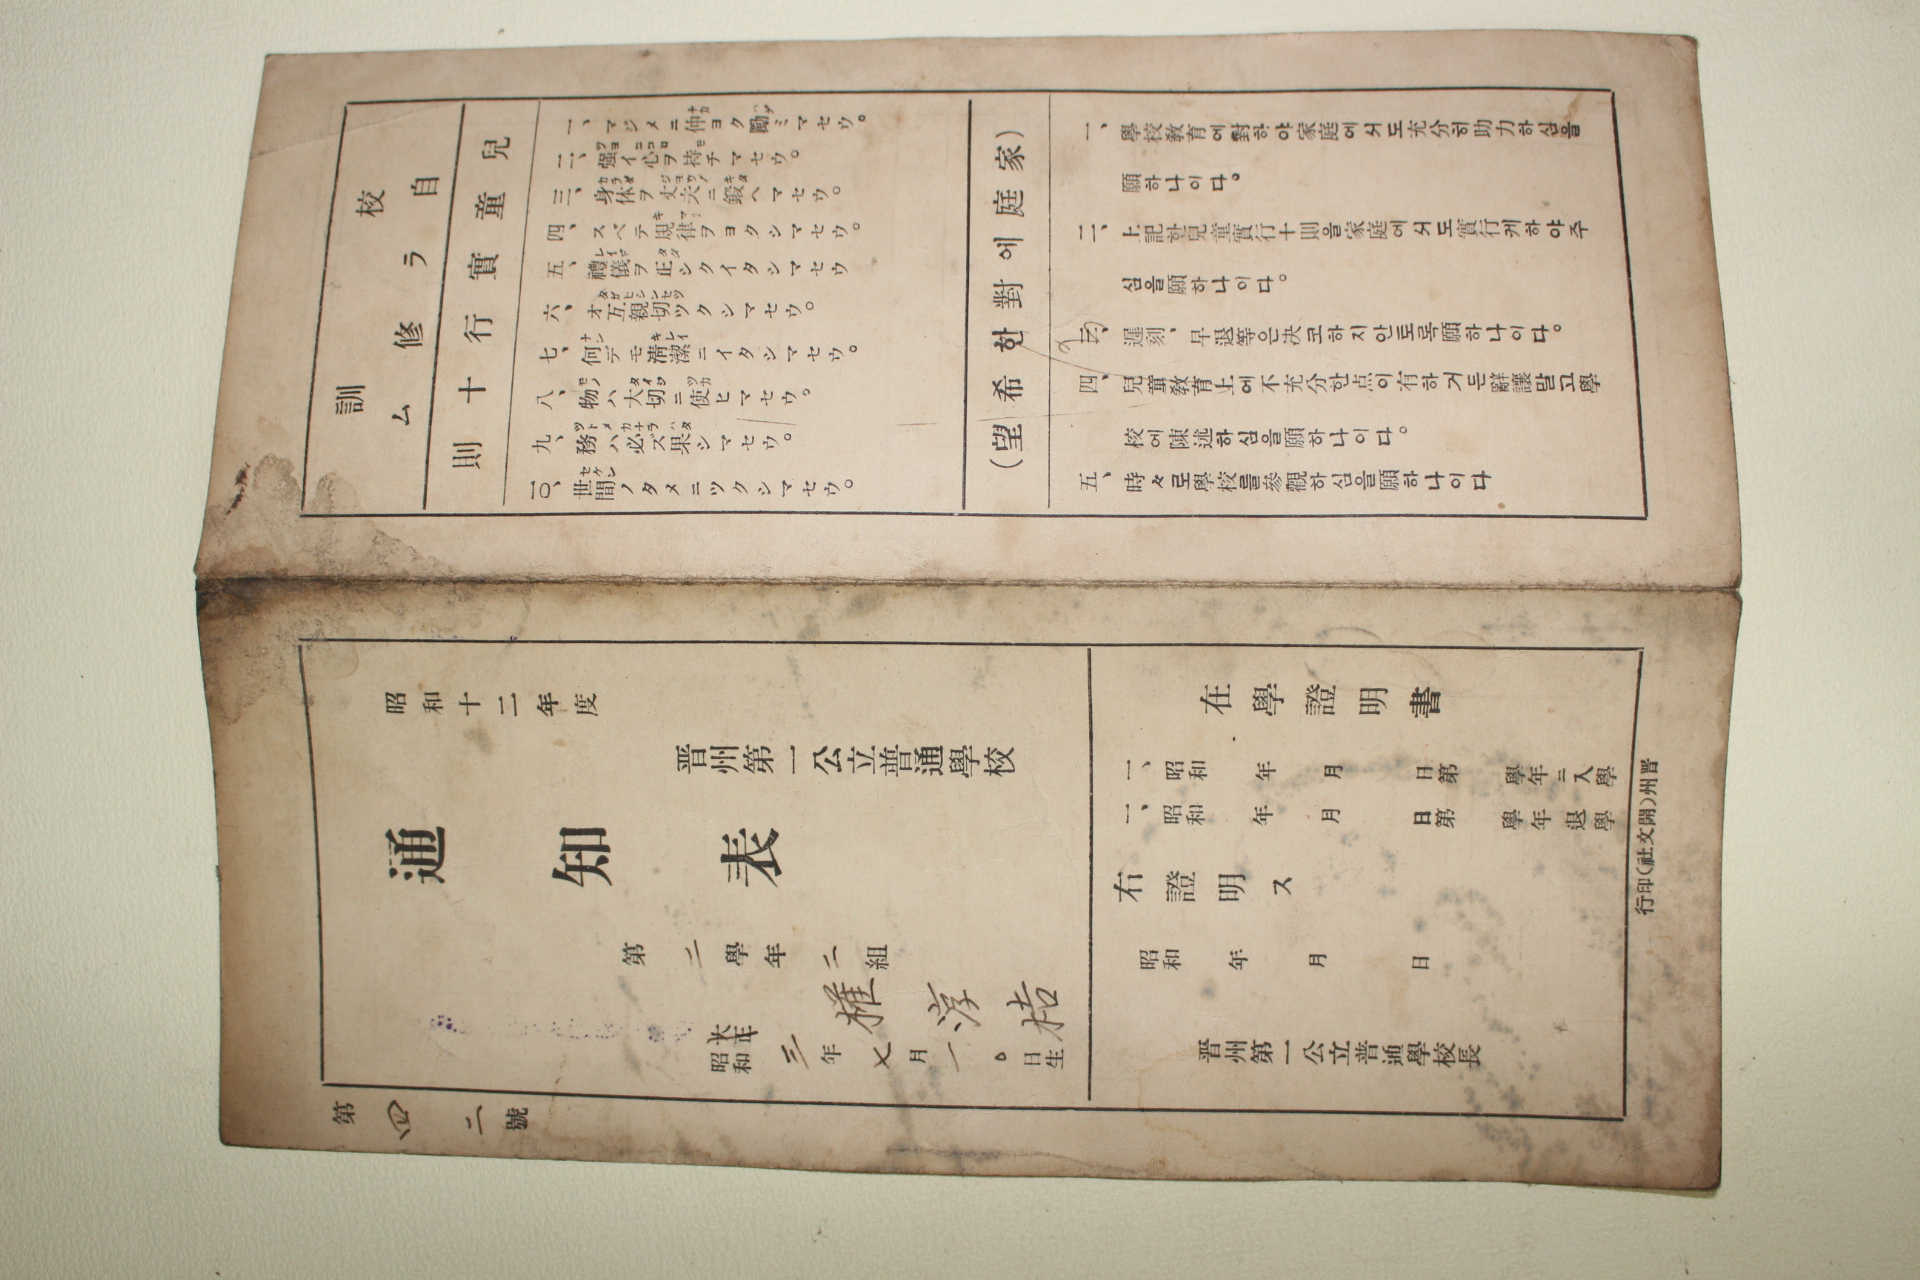 校訓
自ラ修ム
兒童實行十則
一、マジメニ仲ヨク勵ミマセウ。
二、强イ心ヲ持チマセウ。
三、身体ヲ丈夫ニ鍛ヘマセウ。
四、スベテ規律ヲヨクシマセウ。
五、禮儀ヲ正シクイタシマセウ
六、オ互親切ツクシマセウ。
七、何デモ淸潔ニイタシマセウ。
八、物ハ大切ニ使ヒマセウ。
九、務ハ必ズ果シマセウ。
一〇、世間ノタメニツクシマセウ。
(家庭에對한希望)
一、學校敎育에對하야家庭에서도充分히助力하심을
願하나이다。
二、上記한兒童實行十則을家庭에서도實行케하야주
심을願하나이다。
三、遲刻、早退等은決코하지안토록願하나이다。
四、兒童敎育上에不充分한点이有하거든辭讓말고學
校에陳述하심을願하나이다。
五、時々로學校를參觀하심을願하나이다
昭和十二年度
晋州第一公立普通學校
通知表
第二學年二組
權淳桔
大正
昭和三年七月一〇日生
第四二號
在學證明書
一、昭和 年 月 日第 學年ニ入學
一、昭和 年 月 日第 學年退學
右證明ス
昭和 年 月 日
晋州第一公立普通學校長
晋州(開文社)印行